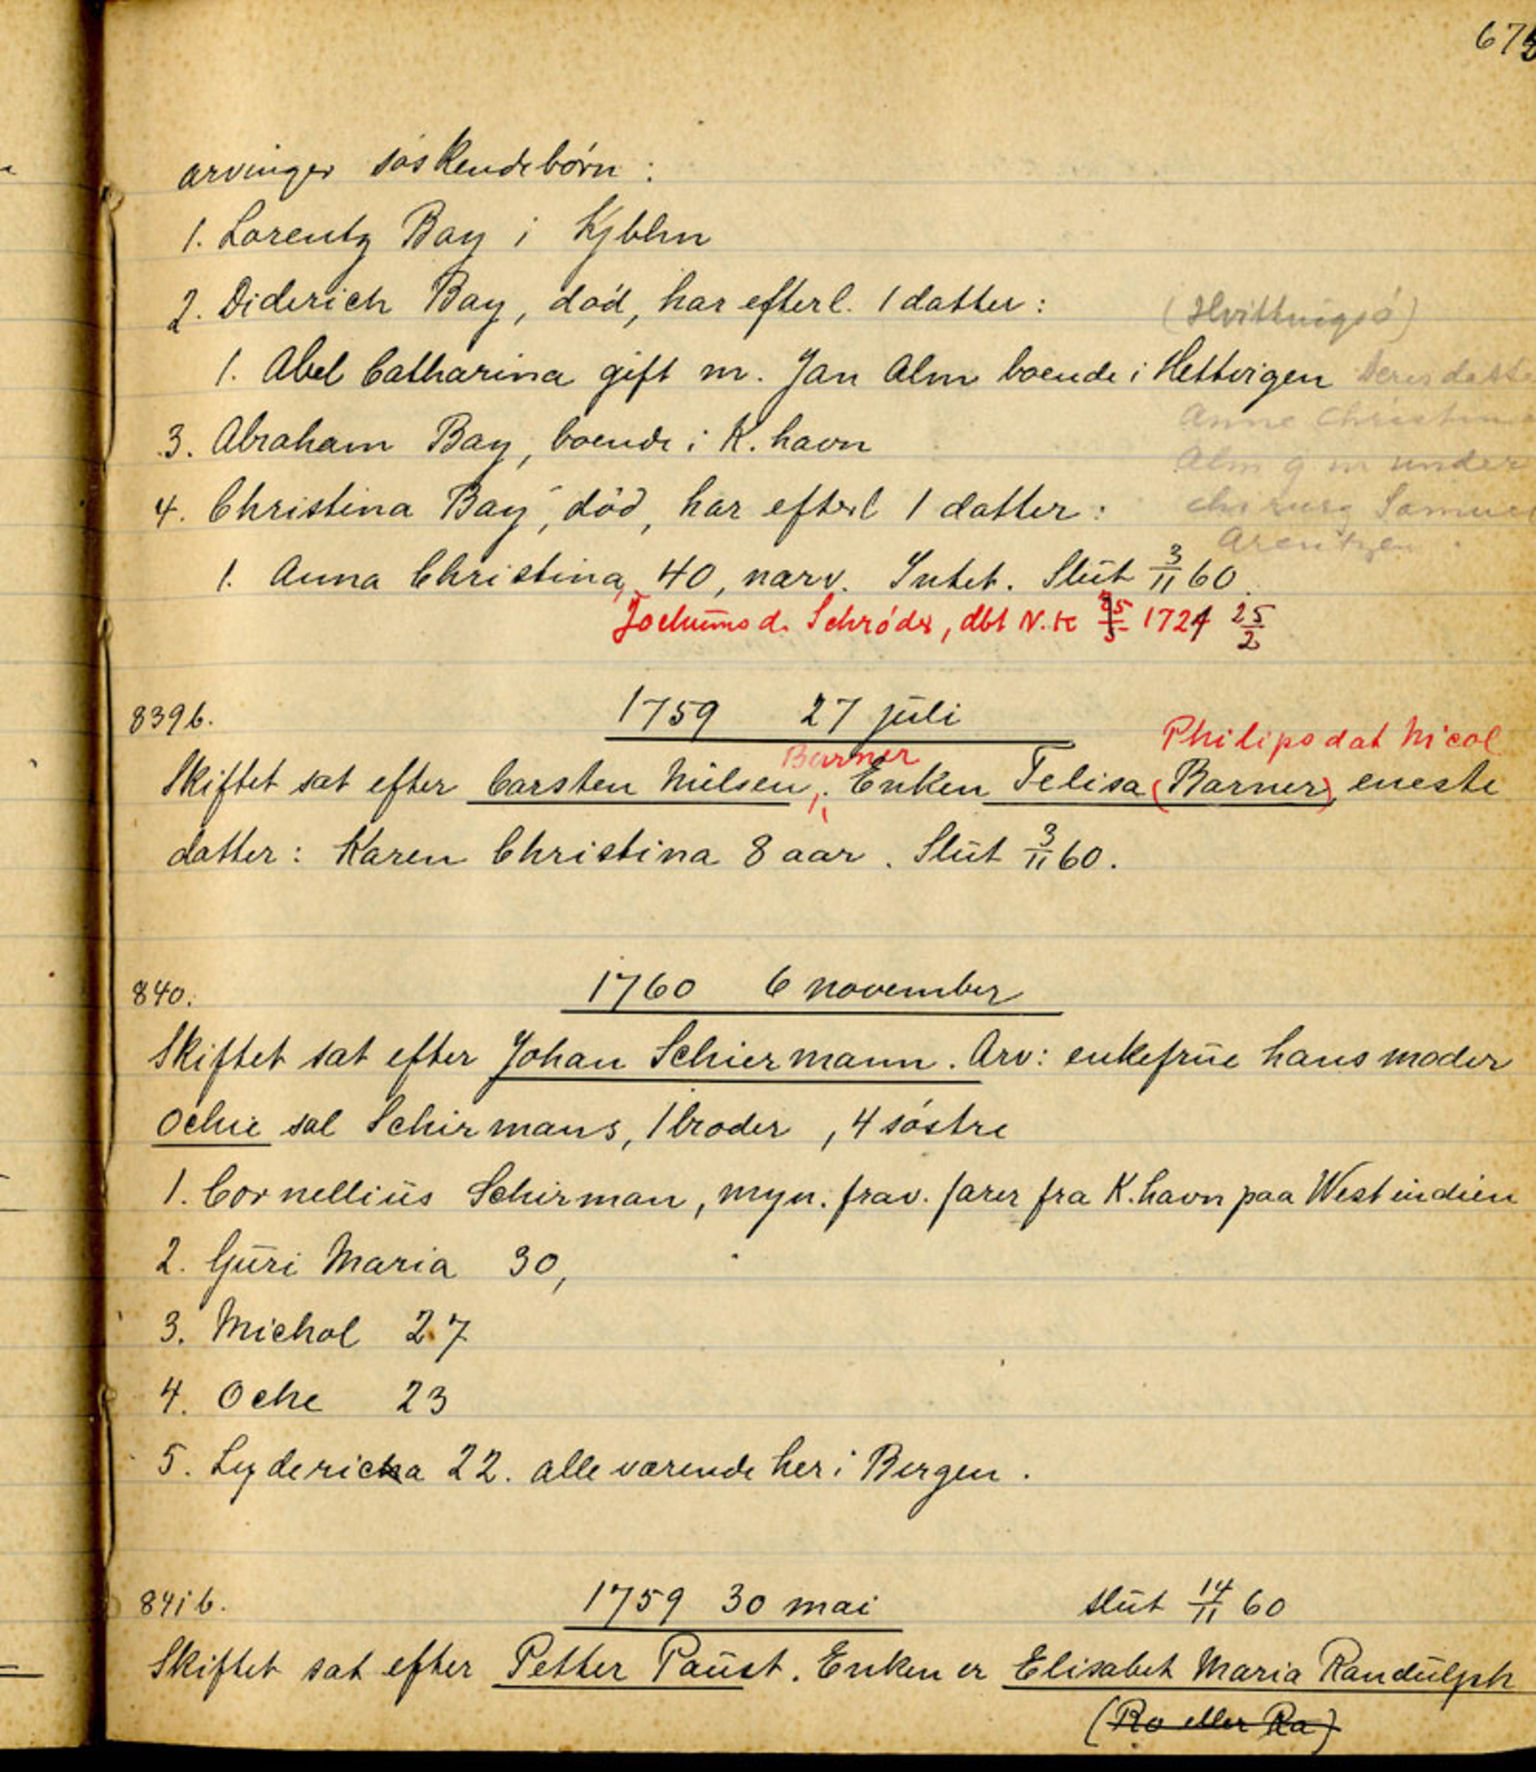 675
arvinger søskendebørn :
1. Lorentz Bay i Kjbhn
2. Diderich Bay, død, har efterl. 1 datter :
(Hvittingsø)
1. Abel Catharina gift m. Jan Alm boende i Hettvigen Deres datte
Anne Christin
3. Abraham Bay, boende i K.havn
Alm g m under
4. Christina Bay, död, har efterl 1 datter :
chirurg Samuel
Arentzen
1. Anna Christina, 40, nærv. Intet. Slŭt 3/11 60.
Jochŭmsd. Schrøder, dbt N.K 1724 25/2
839 b. 1759 27 jŭli
Philipsdat Nicol
Barner
Skiftet sat efter Carsten Nielsen, Enken Telisa (Barner) eneste
datter : Karen Christina 8 aar. Slŭt 3/11 60.
840. 1760 6 november
Skiftet sat efter Johan Schiermann. Arv: enkefrŭe hans moder
Ochie sal Schirmans, 1 broder , 4 søstre
1. Cornelliŭs Schirman, myn. frav. farer fra K.havn paa Westindien
2. Gŭri Maria 30,
3. Michol 27
4. Oche 23
5. Lyderica 22. alle værende her i Bergen.
841 b. 1759 30 mai slŭt 14/11 60
Skiftet sat efter Petter Paŭst. Enken er Elisabet Maria Randŭlph
(Ro eller Ra)